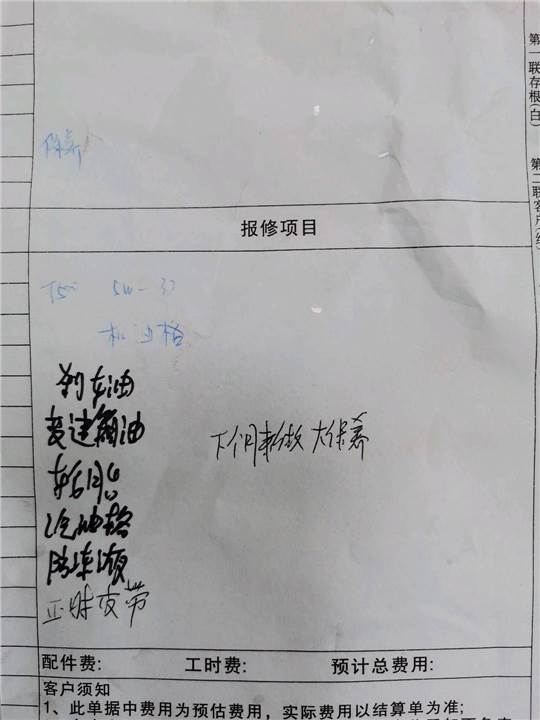 保养
报修项目
5W-30
机油格
刹车油
变速箱油
下个月来做大保养
轮胎
汽油格
防冻液
正时皮带
配件费:
工时费:
预计总费用:
客户须知
1、此单据中费用为预估费用，实际费用以结算单为准;
第一联存根(白)
第二联客户(红)